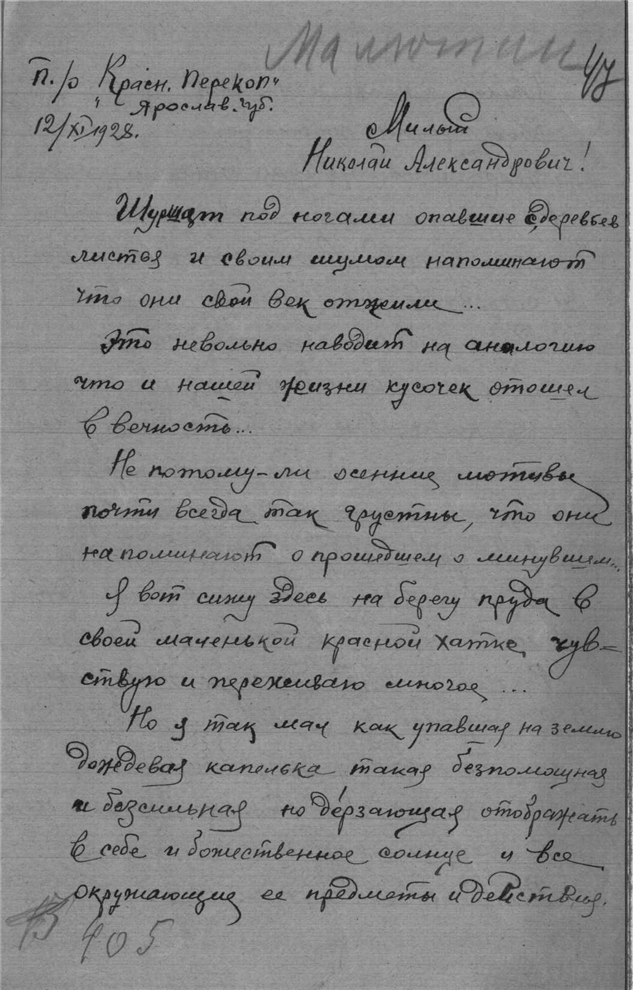 Малютин
47
П./о „Красн. Перекоп"
" Ярослав. губ.
12/XI 1928.
Милый
Николай Александрович!
Шуршат под ногами опавшие с деревьев
листья и своим шумом напоминают
что они свой век отжили...
Это невольно наводит на аналогию
что и нашей жизни кусочек отошел
в вечность...
Не потому-ли осенние мотивы
почти всегда так грустны, что они
напоминают о прошедшем о минувшем...
Я вот сижу здесь на берегу пруда в
своей маленькой красной хатке, чув=
ствую и переживаю многое, ...
Но я так мал как упавшая на землю
дождевая капелька такая безпомощная
и безсильная но дерзающая отображать
в себе и божественное солнце и все
окружающие ее предметы и действия.
405